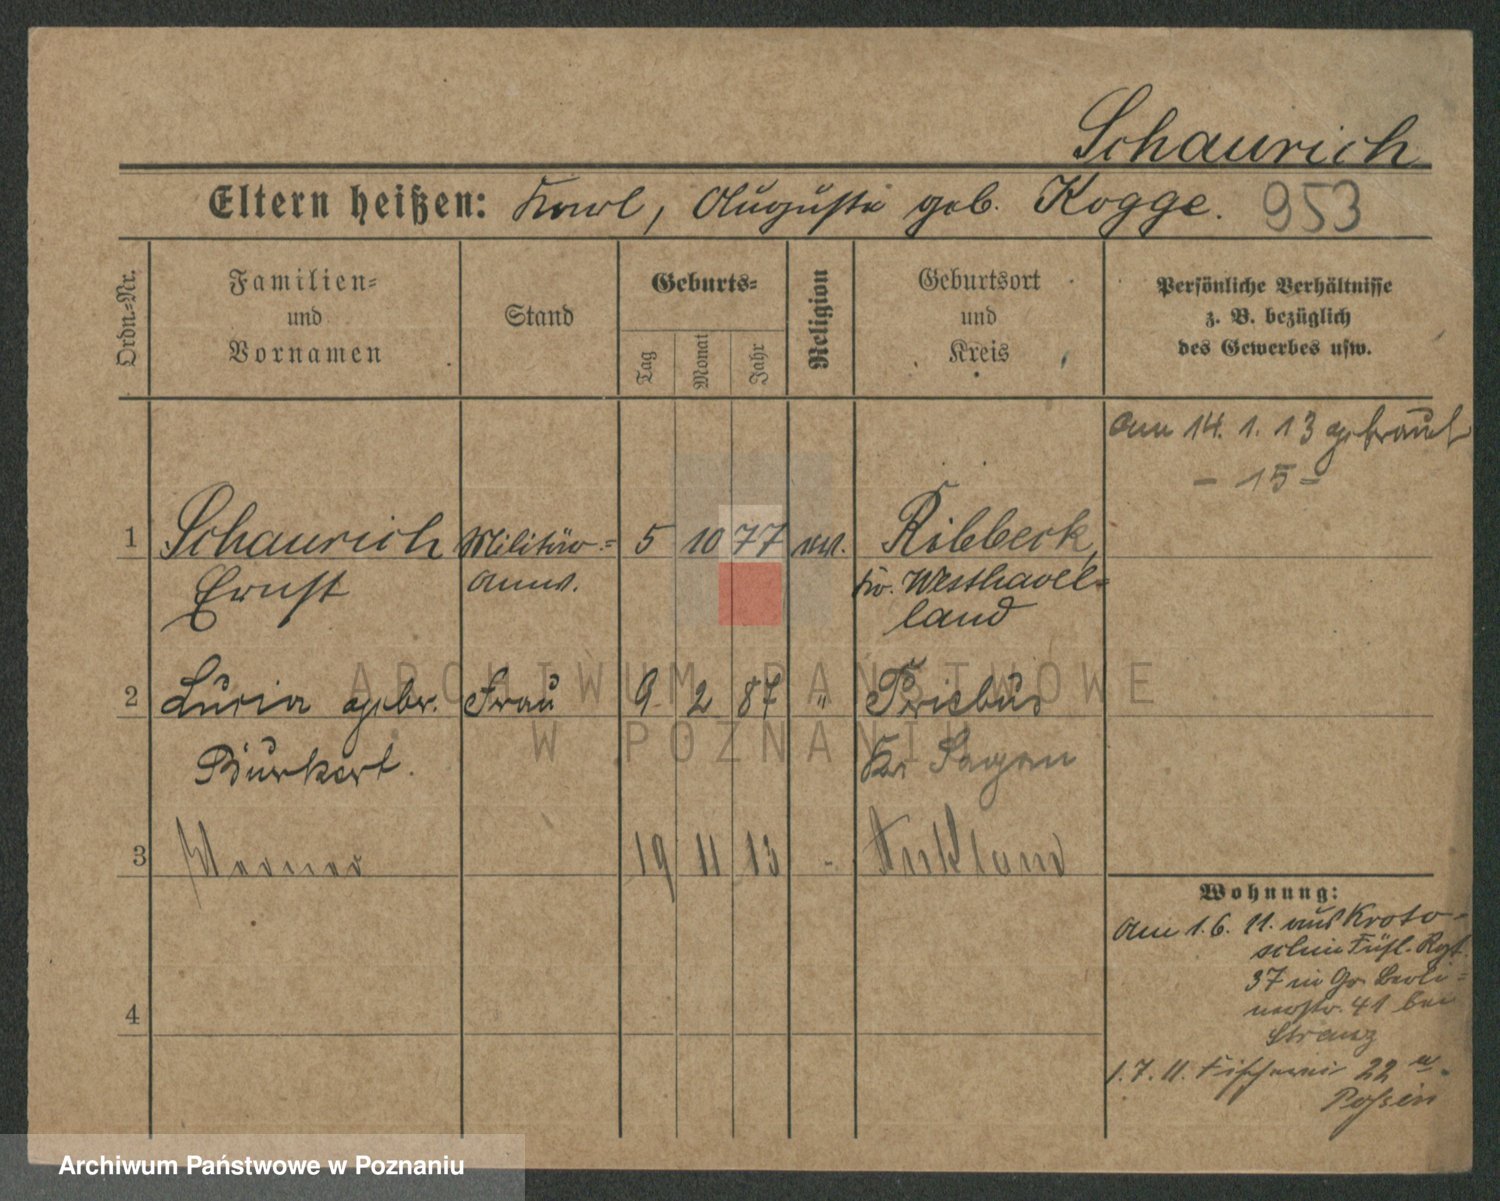 Schaurich
Eltern heißen: Karl, Auguste geb. Kogge. 953
Ordn.-Nr.
Familien-
und
Vornamen
Stand
Geburts-
Tag
Monat
Jahr
Religion
Geburtsort
und
Kreis
Persönliche Verhältnisse
z. B. bezüglich
des Gewerbes usw.
Am 14. 1. 13 getraut
- 15 -
1 Schaurich Militär- 5 10 77 ev. Ribbeck,
Ernst Anw. Kr. Westhavel-
land
2 Lucia gebr. Frau 9 2 87 " Priebus
Burkert. Kr Sagan
3 Werner 19 11 13 -
4
Wohnung:
Am 1. 6. 11. aus Kroto-
schin Füsl. Rgt.
37 in Gr. Berli-
nerstr. 41 bei
Stranz
1. 7. 11. Fischerei 22
Posen
ARCHIWUM PAŃSTWOWE
W POZNANIU
Archiwum Państwowe w Poznaniu